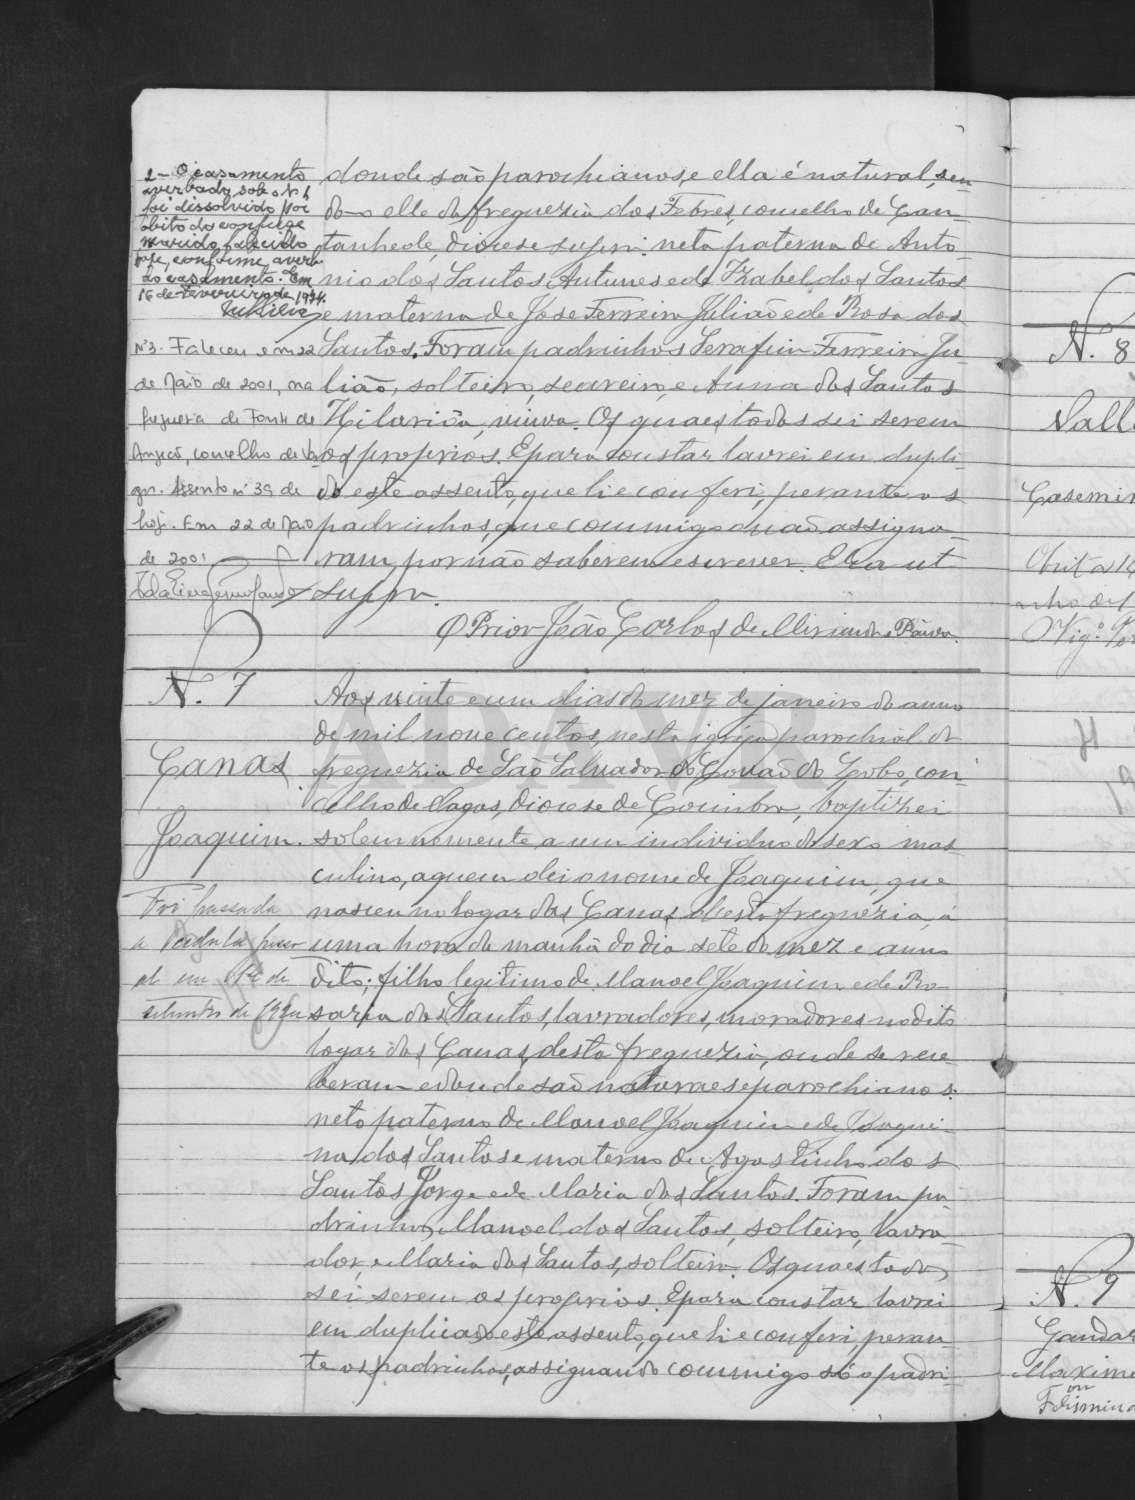 2 - O casamento
averbado sob o N. 1
foi dissolvido por
obito do conjuge
marido, falecido
hoje, conforme averb.
do casamento. Em
16 de Fevereiro de 1974.
donde são parochianos, e ella é natural, sen-
do elle da freguezia dos Febres, concelho de Can-
tanhede, diocese supra: neta paterna de Anto-
nio dos Santos Antunes e de Izabel dos Santos
e materna de Jose Ferreira Julião e de Rosa dos
Santos. Foram padrinhos Serafim Ferreira Ju-
lião, solteiro, seareiro, e Anna dos Santos
Hilariôa, viuva. Os quaes todos sei serem
os proprios. E para constar lavrei em dupli-
do este assento, que li e conferi, perante os
padrinhos, que commigo não assigna-
ram, por não saberem escrever. Era ut
supra.
O Prior João Carlos de Miranda Paiva.
Nº 3 - Faleceu em 22
de Maio de 2001, na
freguesia de Fonte de
Angeão, concelho de Va-
gos. Assento nº 39 de
hoje. Em 22 de Maio
de 2001
N. 7
Canas
Joaquim.
Foi passada
a cedula pesso
al em de
setembro de
Aos vinte e um dias do mez de janeiro do anno
de mil nove centos, nesta igreja parochial da
freguezia de São Salvador do Covão do Lobo, con-
celho de Vagos, diocese de Coimbra, baptizei
solemnemente a um individuo do sexo mas-
culino, a quem dei o nome de Joaquim, que
nasceu no logar das Canas desta freguezia, á
uma hora da manhã do dia sete do mez e anno
dito; filho legitimo de Manoel Joaquim e de Ro-
saria dos Santos, lavradores, moradores no dito
logar das Canas, desta freguezia, onde se rece-
beram e donde são naturaes e parochianos:
neto paterno de Manoel Joaquim e de Joaqui-
na dos Santos e materno de Agostinho dos
Santos Jorge e de Maria dos Santos. Foram pa-
drinhos Manoel dos Santos, solteiro, lavra-
dor, e Maria dos Santos, solteira. Os quaes todos
sei serem os proprios. E para constar lavrei
em duplicado este assento, que li e conferi, peran-
te os padrinhos, assignando commigo só o padri-
N. 8
Valle
Casemir
N. 9
Gandar
Maximi
ou
Felismina
ADAVR